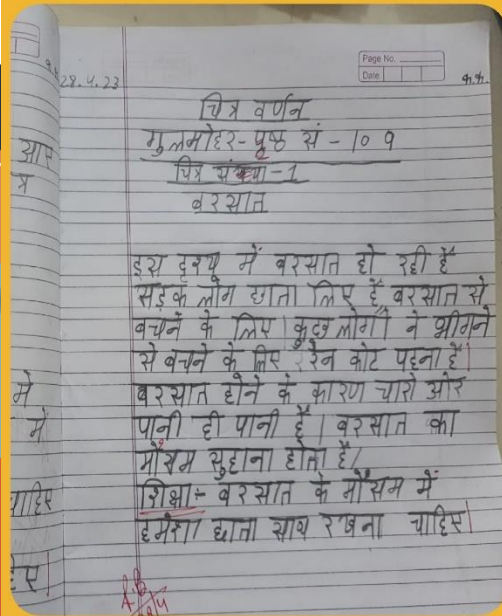 Page No.
Date
28.4.23
क.क.
चित्र वर्णन
गुलमोहर - पृष्ठ सं - 109
चित्र संख्या - 1
बरसात
इस दृश्य में बरसात हो रही हैं
सड़क लोग छाता लिए हैं बरसात से
बचने के लिए। कुछ लोगों ने भीगने
से बचने के लिए रेन कोट पहना हैं।
बरसात होने के कारण चारो ओर
पानी ही पानी हैं। बरसात का
मौसम सुहाना होता है।
शिक्षा - बरसात के मौसम में
हमेशा छाता साथ रखना चाहिए।
आर
त्र
में
में
चाहिए